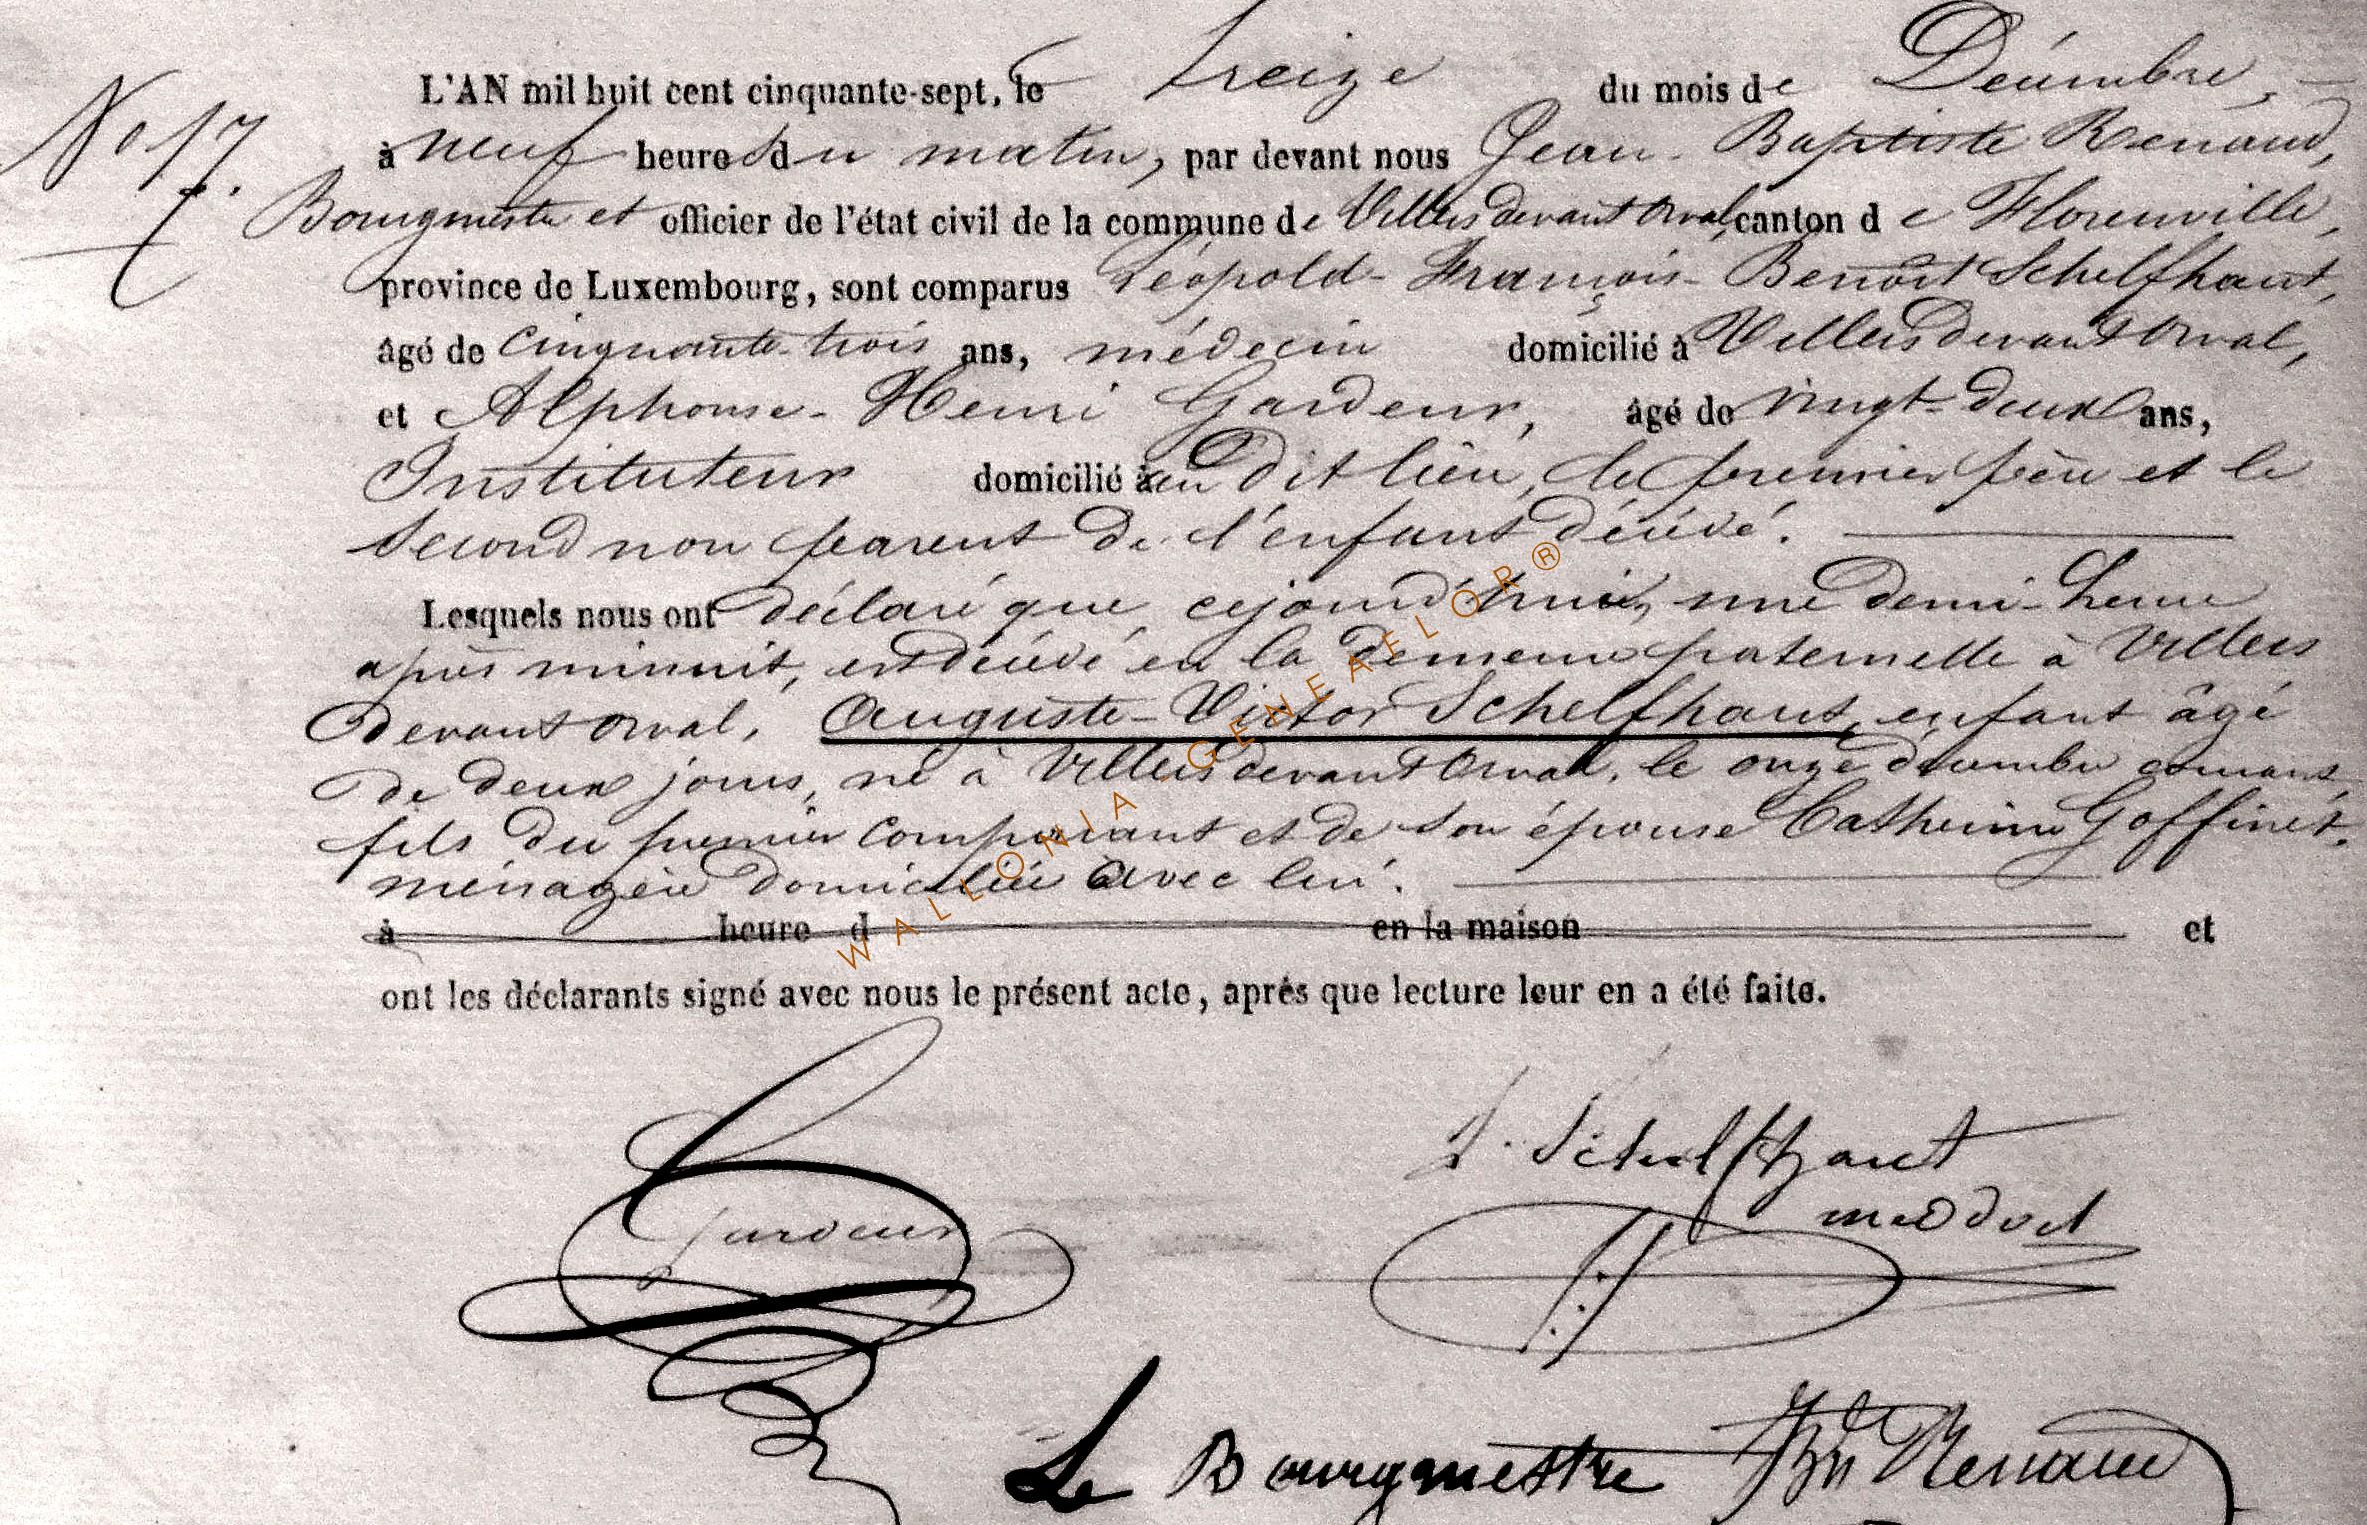 L'AN mil huit cent cinquante-sept, le treize du mois de Décembre,
No 17. à neuf heures du matin, par devant nous Jean-Baptiste Renaud,
Bourgmestre et officier de l'état civil de la commune de Villers devant Orval, canton de Florenville,
province de Luxembourg, sont comparus Léopold-François-Benoît Schelfhaut,
âgé de cinquante-trois ans, médecin domicilié à Villers devant Orval,
et Alphonse-Henri Gardeur, âgé de vingt-deux ans,
Instituteur domicilié au dit lieu, le premier père et le
second non parent de l'enfant décédé.
Lesquels nous ont déclaré que cejourd'hui, une demi-heure
après minuit, est décédé en la demeure paternelle à Villers
devant Orval, Auguste-Victor Schelfhaut, enfant âgé
de deux jours, né à Villers devant Orval, le onze décembre courant,
fils du premier comparant et de son épouse Catherine Goffinet,
ménagère domiciliée avec lui.
à heure d en la maison et
ont les déclarants signé avec nous le présent acte, après que lecture leur en a été faite.
WALLONIA GENEAFLOR®
Gardeur
Schelfhaut
Le Bourgmestre JBte Renaud